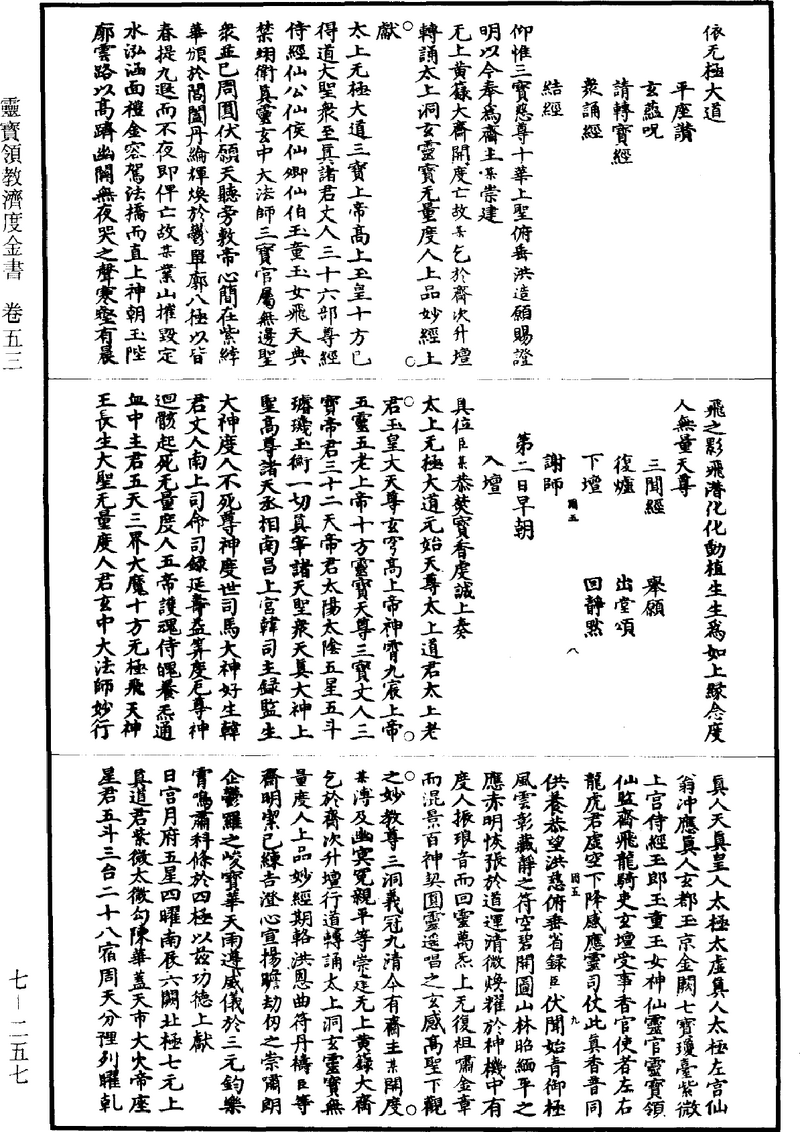 靈寶領教濟度金書 卷五三
七—二五七
依无極大道
平座讃
玄蘊呪
請轉寶經
衆誦經
結經
仰惟三寶慈尊十華上聖俯垂洪造願賜證
明以今奉爲齋主某崇建
无上黃籙大齋開度亡故某乞於齋次升壇
轉誦太上洞玄靈寶无量度人上品妙經上
獻
太上无極大道三寶上帝高上玉皇十方已
得道大聖衆至眞諸君丈人三十六部尊經
侍經仙公仙侯仙卿仙伯玉童玉女飛天典
禁翊衛眞靈玄中大法師三寶官屬無邊聖
衆並已周圓伏願天聽旁敷帝心簡在紫綍
華頒於閶闔丹綸輝煥於鬱單廓八極以皆
春提九遐而不夜即俾亡故某業山摧毀定
水泓涵面禮金容駕法橋而直上神朝玉陛
廓雲路以高躋幽關無夜哭之聲寒壑有晨
飛之影飛潛化化動植生生爲如上緣念度
人無量天尊
三聞經 舉願
復爐 出堂頌
下壇 回靜默
謝師
國五 八
第二日早朝
入壇
具位臣某恭焚寶香虔誠上奏
太上无極大道元始天尊太上道君太上老
君玉皇大天尊玄穹高上帝神霄九宸上帝
五靈五老上帝十方靈寶天尊三寶丈人三
寶帝君三十二天帝君太陽太陰五星五斗
璿璣玉衡一切眞宰諸天聖衆天眞大神上
聖高尊諸天丞相南昌上宮韓司主錄監生
大神度人不死尊神度世司馬大神好生韓
君丈人南上司命司錄延壽益算度厄尊神
迴骸起死无量度人五帝護魂侍魄養炁通
血中主君五天三界大魔十方无極飛天神
王長生大聖无量度人君玄中大法師妙行
眞人天眞皇人太極太虛眞人太極左宮仙
翁沖應眞人玄都玉京金闕七寶瓊臺紫微
上宮侍經玉郎玉童玉女神仙靈官靈寶領
仙監齋飛龍騎吏玄壇受事香官使者左右
龍虎君虛空下降感應靈司仗此眞香普同
國五 九
供養恭望洪慈俯垂省錄臣伏聞始青御極
風雲彰藏靜之符空碧開圖山林昭緬平之
應赤明恢張於道運清微煥耀於神機中有
度人振琅音而回靈萬炁上无復祖嘯金章
而混景百神契圓靈遥唱之玄感高聖下觀
之妙教尊三洞義冠九清今有齋主某開度
某溥及幽冥冤親平等崇建无上黃籙大齋
乞於齋次升壇行道轉誦太上洞玄靈寶無
量度人上品妙經期輅洪恩曲符丹禱臣等
齋明潔已練吉澄心宣揚曕劫仞之崇嘯朗
企鬱羅之峻寶華天南導威儀於三元鈞樂
霄鳴肅科條於四極以茲功德上獻
日宮月府五星四曜南辰六闕北極七元上
眞道君紫微太微勾陳華蓋天市大火帝座
星君五斗三台二十八宿周天分裡列曜軋